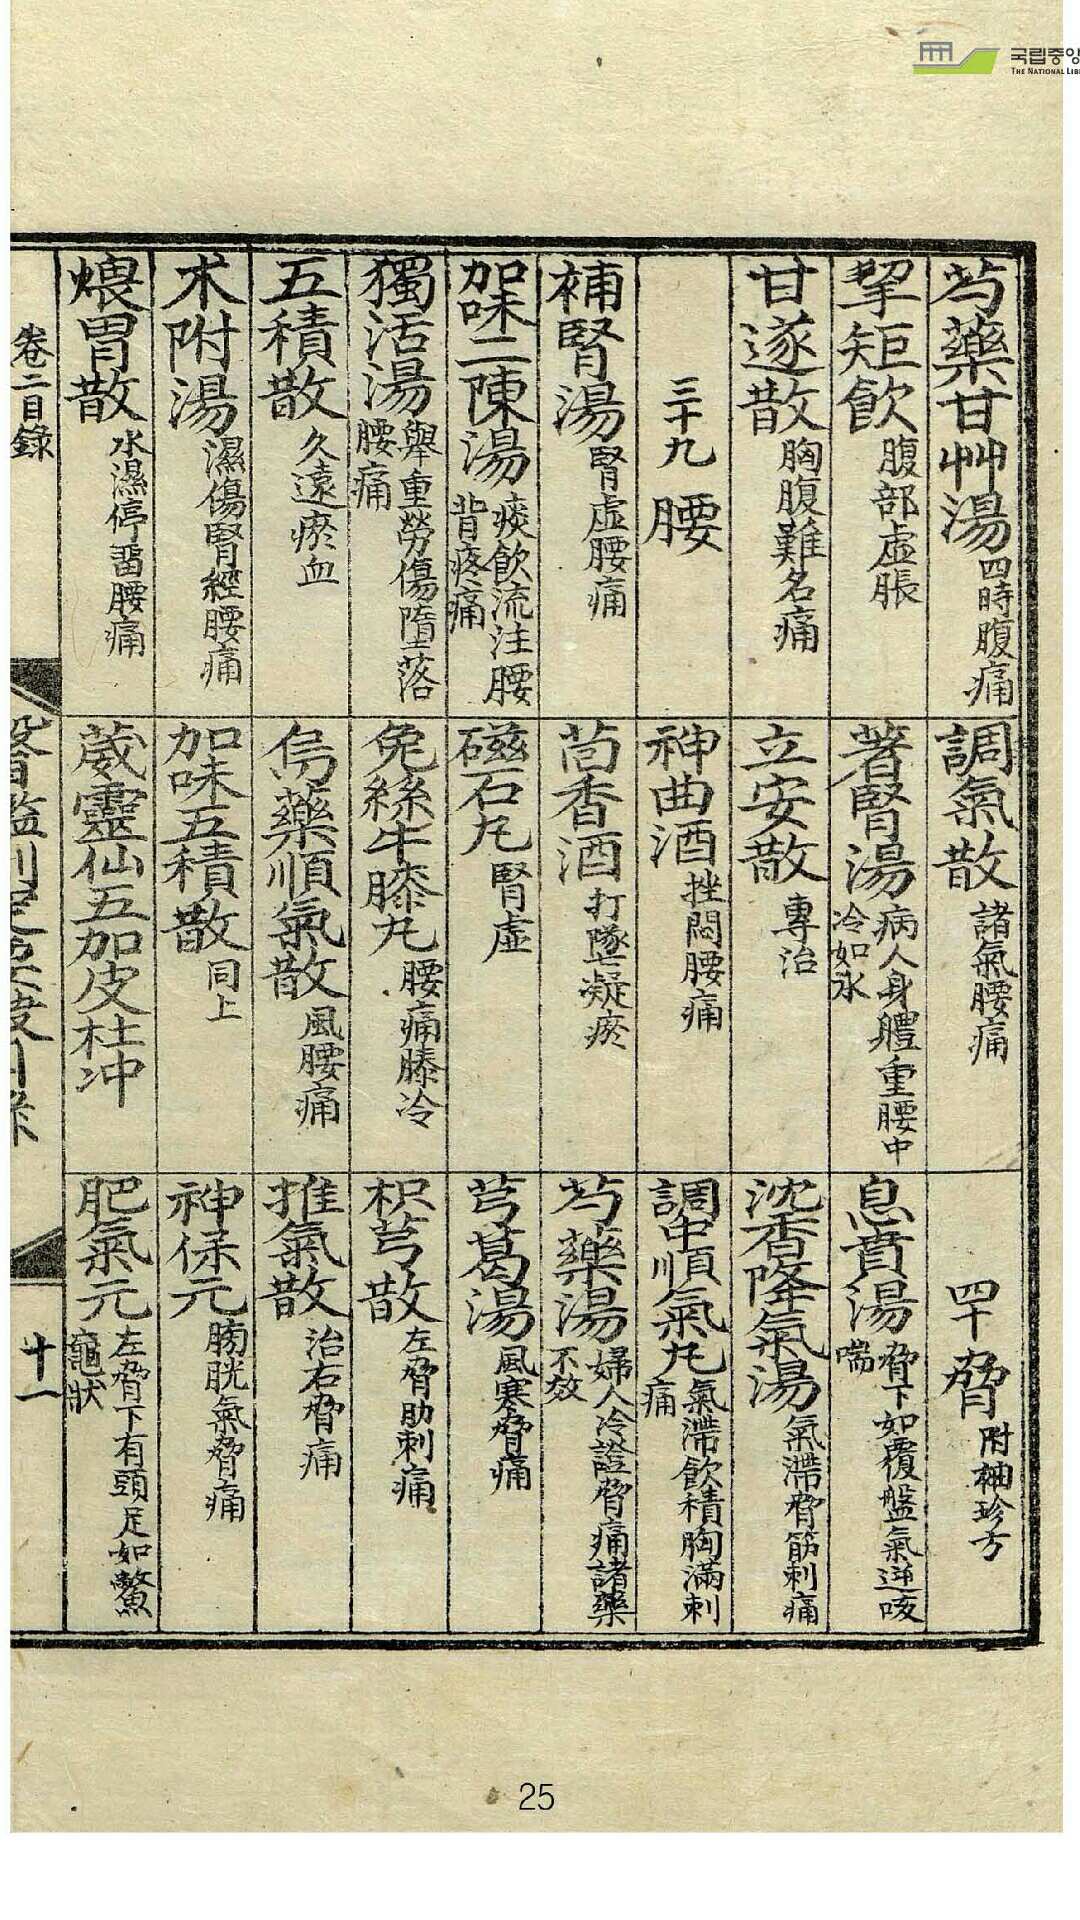 국립중앙
THE NATIONAL LIB
芍藥甘艸湯 四時腹痛
挈矩飮 腹部虛脹
甘遂散 胸腹難名痛
三十九 腰
補腎湯 腎虛腰痛
加味二陳湯 痰飮流注腰背疼痛
獨活湯 擧重勞傷墮落腰痛
五積散 久遠瘀血
朮附湯 濕傷腎經腰痛
煨胃散 水濕停畱腰痛
調氣散 諸氣腰痛
著腎湯 病人身體重腰中冷如氷
立安散 專治
神曲酒 挫閃腰痛
茴香酒 打墜凝瘀
磁石丸 腎虛
兔絲牛膝丸 腰痛膝冷
烏藥順氣散 風腰痛
加味五積散 同上
葳靈仙五加皮杜冲
四十 脅 附袖珍方
息賁湯 脅下如覆盤氣逆咳喘
沈香降氣湯 氣滯脅筋刺痛
調中順氣丸 氣滯飮積胸滿刺痛
芍藥湯 婦人冷證脅痛諸藥不效
芎葛湯 風寒脅痛
枳芎散 左脅肋刺痛
推氣散 治右脅痛
神保元 膀胱氣脅痛
肥氣元 左脅下有頭足如鱉龜狀
卷二目錄
十一
25